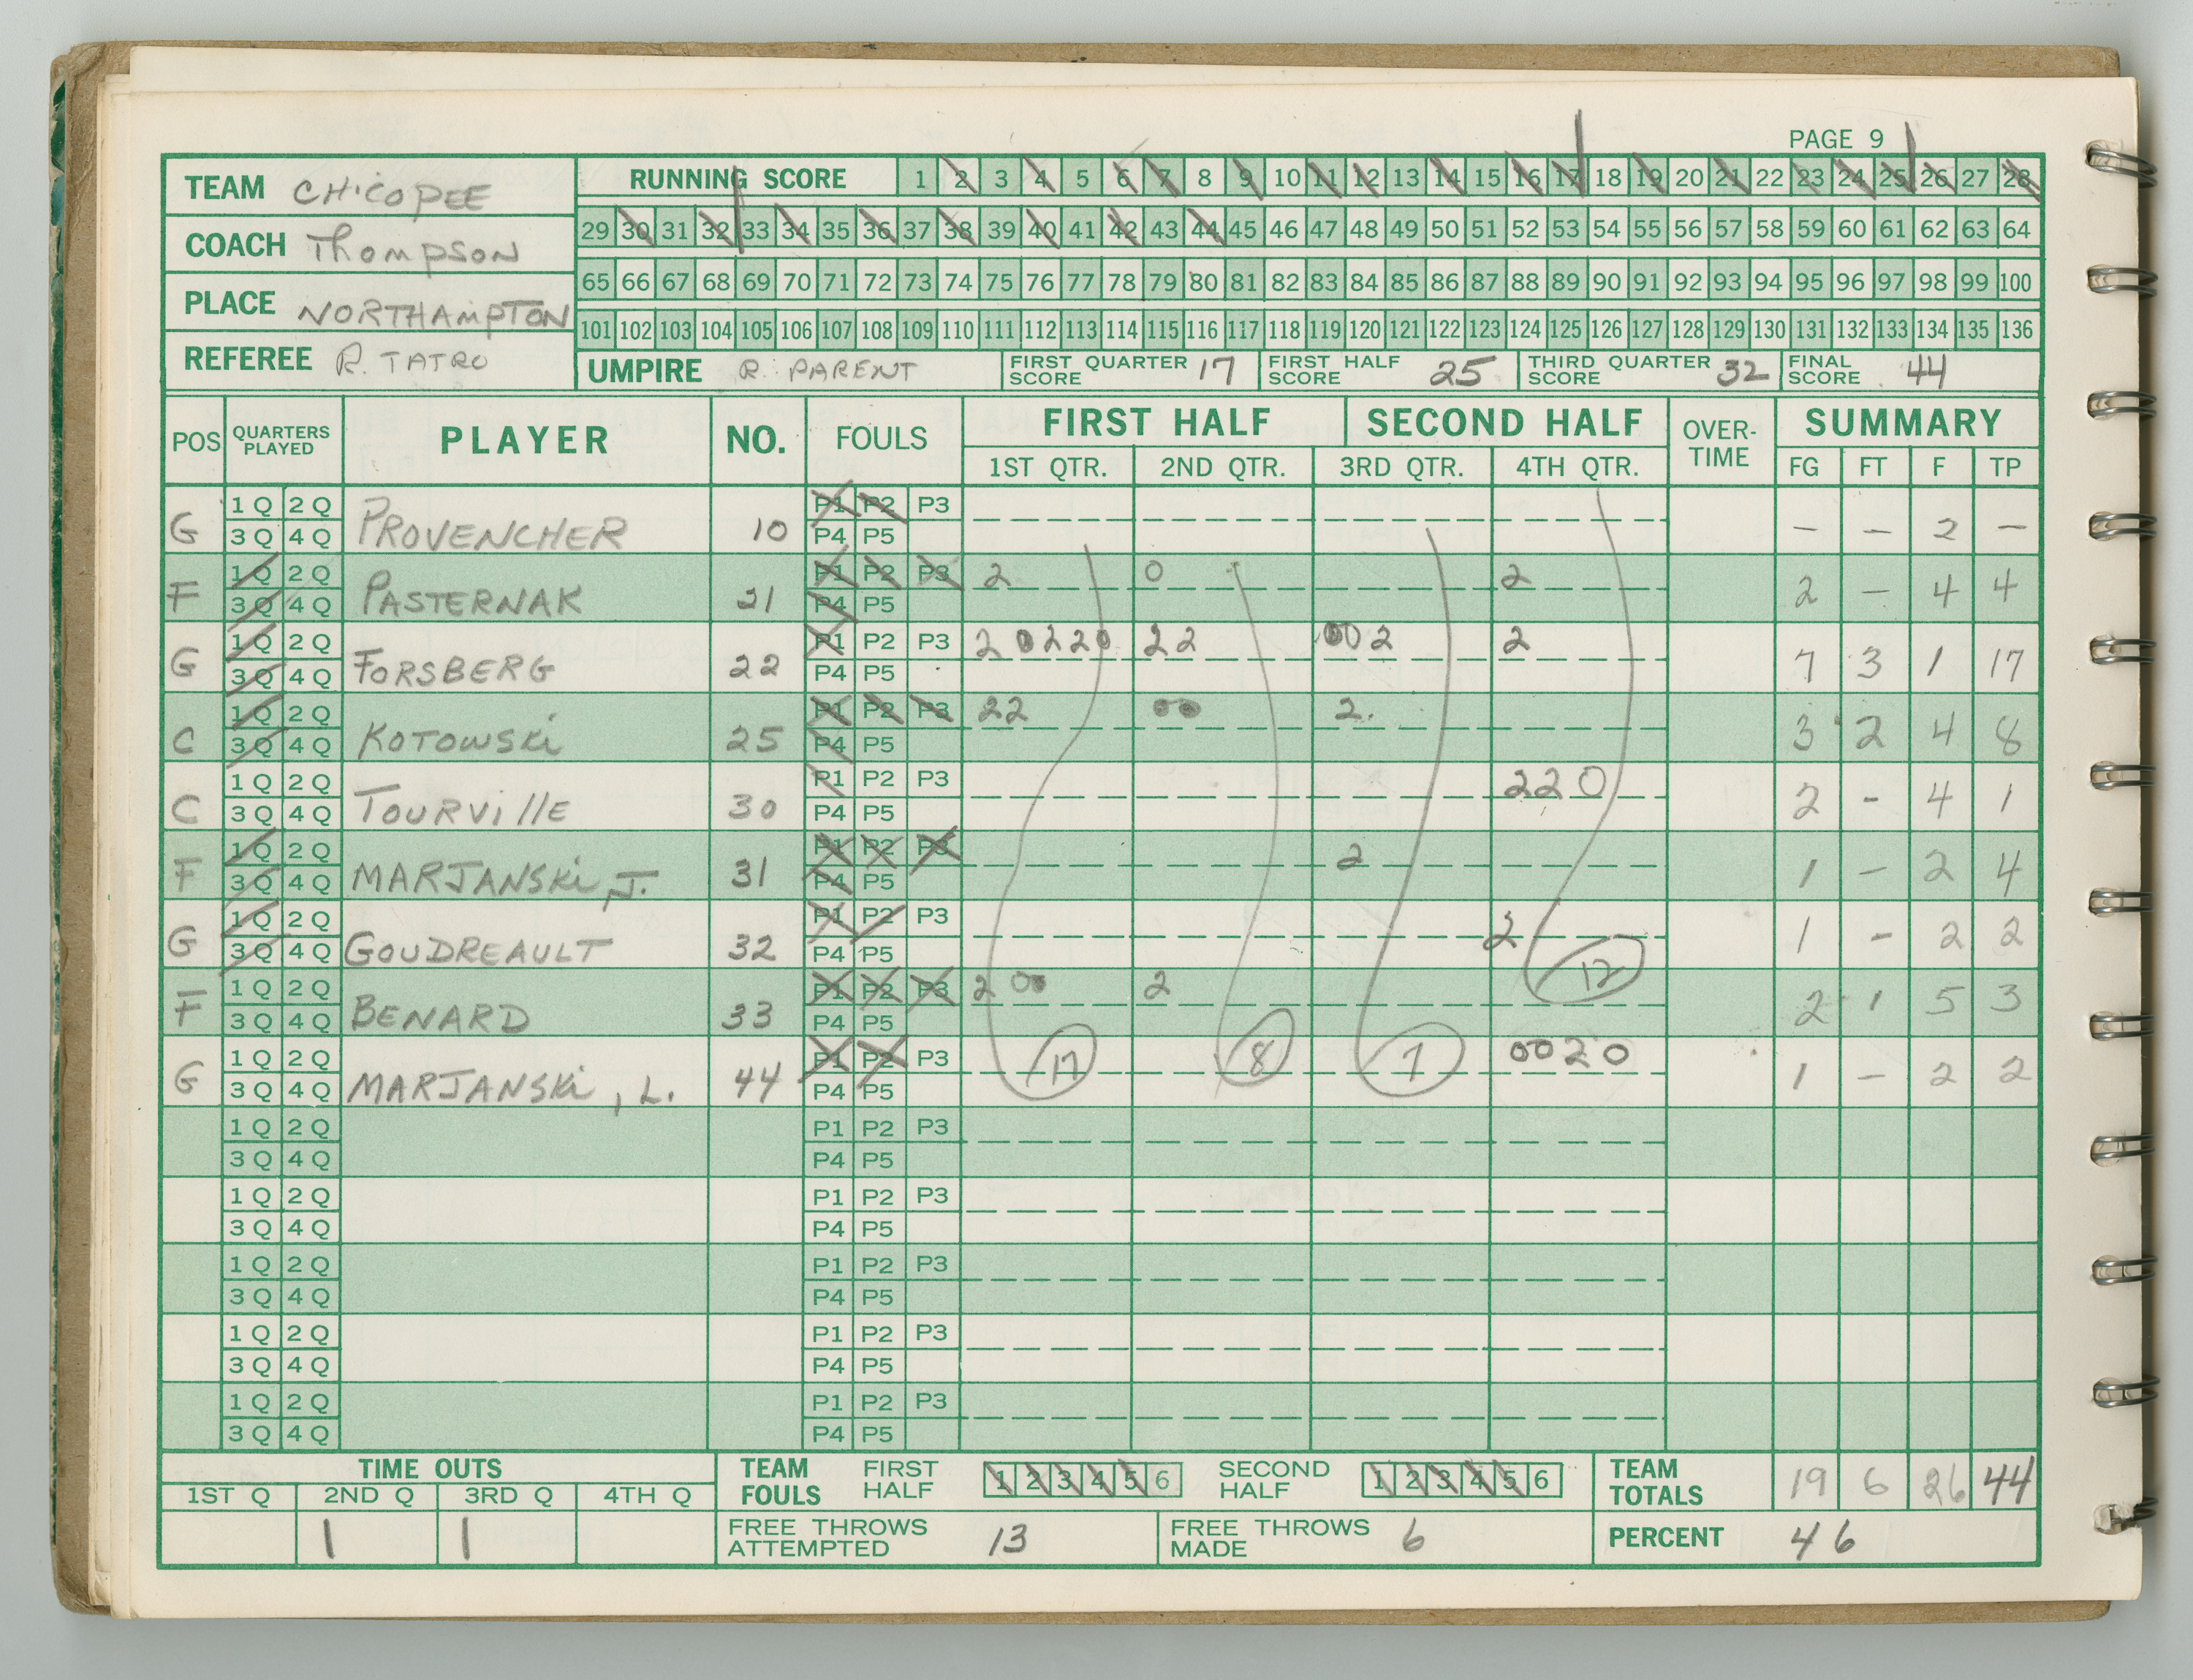 PAGE 9
TEAM CHICOPEE
RUNNING SCORE 1 2 3 4 5 6 7 8 9 10 11 12 13 14 15 16 17 18 19 20 21 22 23 24 25 26 27 28
COACH Thompson
29 30 31 32 33 34 35 36 37 38 39 40 41 42 43 44 45 46 47 48 49 50 51 52 53 54 55 56 57 58 59 60 61 62 63 64
PLACE NORTHAMPTON
65 66 67 68 69 70 71 72 73 74 75 76 77 78 79 80 81 82 83 84 85 86 87 88 89 90 91 92 93 94 95 96 97 98 99 100
101 102 103 104 105 106 107 108 109 110 111 112 113 114 115 116 117 118 119 120 121 122 123 124 125 126 127 128 129 130 131 132 133 134 135 136
REFEREE R. TATRO
UMPIRE R. PARENT
FIRST QUARTER SCORE 17
FIRST HALF SCORE 25
THIRD QUARTER SCORE 32
FINAL SCORE 44
POS QUARTERS PLAYED PLAYER NO. FOULS FIRST HALF SECOND HALF OVER-TIME SUMMARY
1ST QTR. 2ND QTR. 3RD QTR. 4TH QTR. FG FT F TP
G 1Q 2Q 3Q 4Q PROVENCHER 10 P1 P2 P3 P4 P5 — — 2 —
F 1Q 2Q 3Q 4Q PASTERNAK 21 P1 P2 P3 P4 P5 2 0 2 2 — 4 4
G 1Q 2Q 3Q 4Q FORSBERG 22 P1 P2 P3 P4 P5 2 0 2 2 0 2 2 0 0 2 2 7 3 1 17
C 1Q 2Q 3Q 4Q KOTOWSKi 25 P1 P2 P3 P4 P5 2 2 0 0 2. 3 2 4 8
C 1Q 2Q 3Q 4Q TOURVillE 30 P1 P2 P3 P4 P5 2 2 0 2 - 4 1
F 1Q 2Q 3Q 4Q MARJANSKi, J. 31 P1 P2 P3 P4 P5 2 1 — 2 4
G 1Q 2Q 3Q 4Q GOUDREAULT 32 P1 P2 P3 P4 P5 2 12 1 - 2 2
F 1Q 2Q 3Q 4Q BENARD 33 P1 P2 P3 P4 P5 2 0 0 2 2 1 5 3
G 1Q 2Q 3Q 4Q MARJANSKi, L. 44 P1 P2 P3 P4 P5 17 8 7 0 0 2 0 1 — 2 2
1Q 2Q 3Q 4Q P1 P2 P3 P4 P5
1Q 2Q 3Q 4Q P1 P2 P3 P4 P5
1Q 2Q 3Q 4Q P1 P2 P3 P4 P5
1Q 2Q 3Q 4Q P1 P2 P3 P4 P5
1Q 2Q 3Q 4Q P1 P2 P3 P4 P5
TIME OUTS
1ST Q 2ND Q 3RD Q 4TH Q
1 1
TEAM FOULS FIRST HALF 1 2 3 4 5 6 SECOND HALF 1 2 3 4 5 6
TEAM TOTALS 19 6 26 44
FREE THROWS ATTEMPTED 13
FREE THROWS MADE 6
PERCENT 46